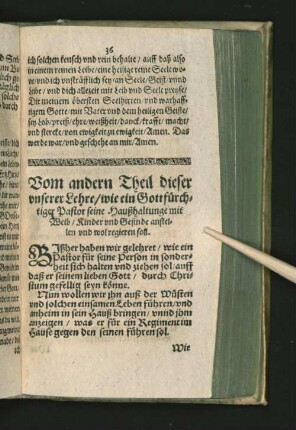 36
ich solchen keusch vnd rein behalte / auff daß also
in einem reinen Leibe / eine heilige reine Seele wo-
ne / vnd ich vnsträfflich sey / an Seele / Geist / vnnd
Leibe / vnd dich allezeit mit Leib vnd Seele preyse /
Dir meinem öbersten Seelhirten / vnd warhaff-
tigem Gotte / mit Vater vnd dem heiligen Geiste /
sey Lob / preyß / ehre / weißheit / danck / krafft / macht /
vnd stercke / von ewigkeit zu ewigkeit / Amen. Das
werde war / vnd geschehe an mir / Amen.
Vom andern Theil dieser
vnserer Lehre / wie ein Gottfürch-
tiger Pastor seine Haußhaltunge mit
Weib / Kinder vnd Gesinde anstel-
len vnd wol regieren soll.
BIßher haben wir gelehret / wie ein
Pastor für seine Person in sonder-
heit sich halten vnd ziehen sol / auff
daß er seinem lieben Gott / durch Chri-
stum gefellig seyn könne.
Nun wollen wir jhn auß der Wüsten
vnd solchen einsamen Leben führen / vnd
anheim in sein Hauß bringen / vnnd jhm
anzeigen / was er für ein Regiment im
Hause gegen den seinen führen sol.
Wie